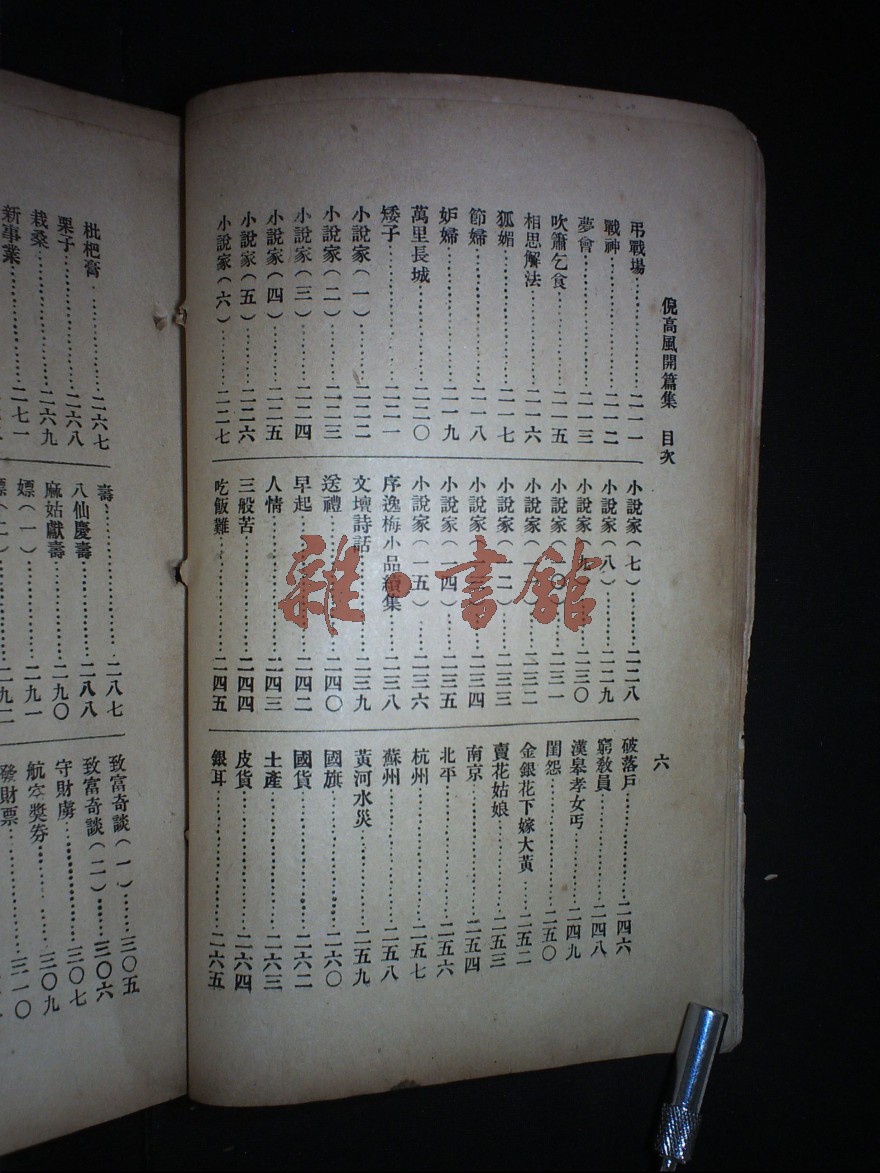 倪高風開篇集　目次
六
弔戰場……二一一
戰神……二一二
夢會……二一三
吹簫乞食……二一五
相思解法……二一六
狐媚……二一七
節婦……二一八
妒婦……二一九
萬里長城……二二〇
矮子……二二一
小說家(一)……二二二
小說家(二)……二二三
小說家(三)……二二四
小說家(四)……二二五
小說家(五)……二二六
小說家(六)……二二七
小說家(七)……二二八
小說家(八)……二二九
小說家(九)……二三〇
小說家(一〇)……二三一
小說家(一一)……二三二
小說家(一二)……二三三
小說家(一三)……二三四
小說家(一四)……二三五
小說家(一五)……二三六
序逸梅小品續集……二三八
文壇詩話……二三九
送禮……二四〇
早起……二四二
人情……二四三
三般苦……二四四
吃飯難……二四五
破落戶……二四六
窮敎員……二四八
漢皋孝女丐……二四九
閨怨……二五〇
金銀花下嫁大黃……二五二
賣花姑娘……二五三
南京……二五四
北平……二五六
杭州……二五七
蘇州……二五八
黃河水災……二五九
國旗……二六〇
國貨……二六二
土產……二六三
皮貨……二六四
銀耳……二六五
枇杷膏……二六七
栗子……二六八
栽桑……二六九
新事業……二七一
壽……二八七
八仙慶壽……二八八
麻姑獻壽……二九〇
嫖(一)……二九一
嫖(二)……二九二
致富奇談(一)……三〇五
致富奇談(二)……三〇六
守財虜……三〇七
航空獎券……三〇九
發財票……三一〇
雜·書館